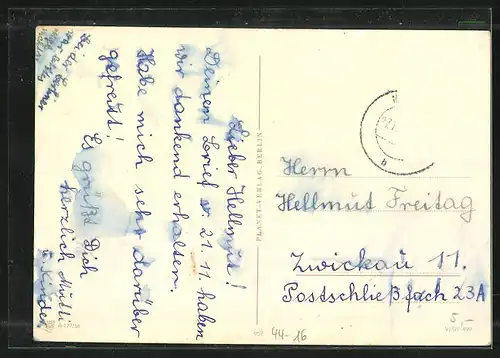 Lieber Hellmut!
Deinen Brief v. 21.11. haben
wir dankend erhalten.
Habe mich sehr darüber
gefreut!
Es grüßt Dich
herzlich Mutti
u. Kinder
Leider
war
PLANET-VERLAG-BERLIN
Herrn
Hellmut Freitag
Zwickau 11.
Postschließfach 23A
5,-
44-16